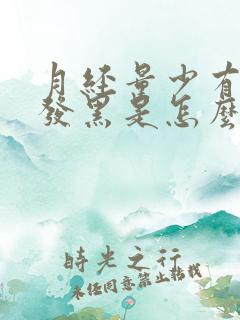 月經量少有
發黑是怎麼
時光之行
未經同意禁止轉載